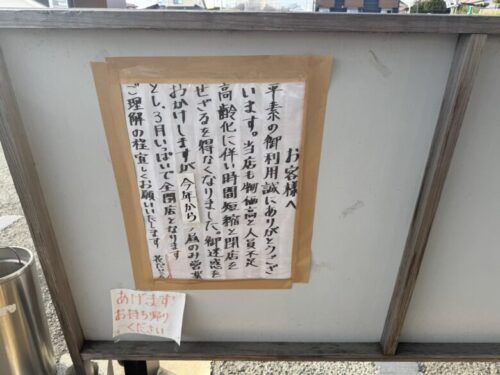 お客様へ
平素の御利用誠にありがとうござ
います。当店も物価高と人員不足
高齢化に伴い時間短縮と閉店を
せざるを得なくなりました。御迷惑を
おかけしますが今年から昼のみ営業
とし、3月いっぱいで全閉店となります
ご理解の程宜しくお願いいたします
あげます!
お持ち帰り
ください